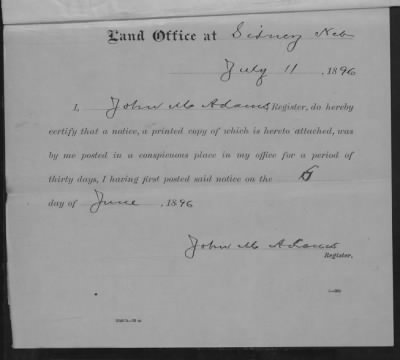 Land Office at Sidney Neb
July 11, 1896
I, John M Adams, Register, do hereby
certify that a notice, a printed copy of which is hereto attached, was
by me posted in a conspicuous place in my office for a period of
thirty days, I having first posted said notice on the 6
day of June, 1896
John M Adams
Register.